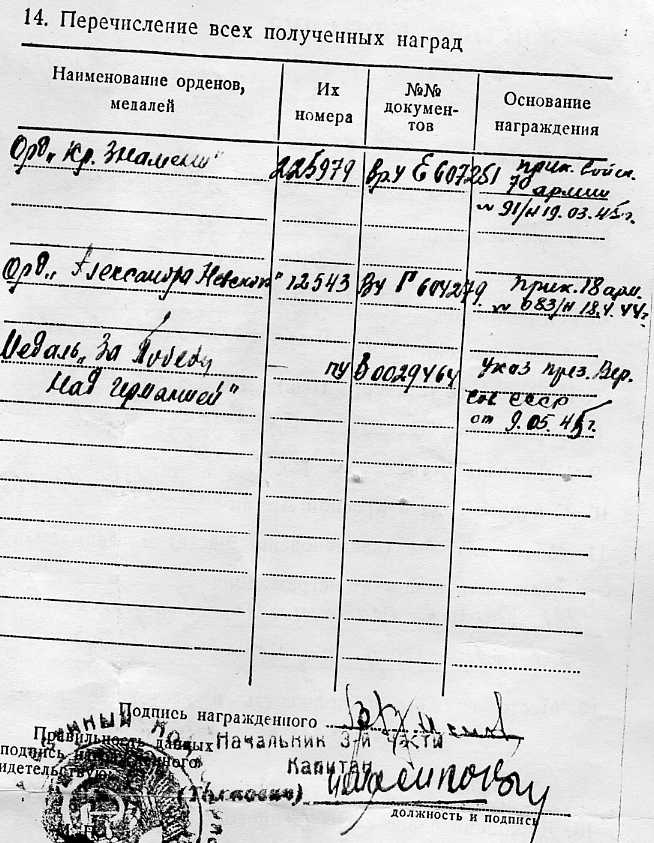 14. Перечисление всех полученных наград
Наименование орденов, медалей
Их номера
№№ документов
Основание награждения
Орд. „Кр. Знамени" 225979 Вр.У Е 607251 прик. войск.
70 армии
№ 91/н 19.03.45г.
Орд. „Александра Невского" 12543 ВУ Г 604279 прик. 18 арм.
№ 083/н 18.4.44г.
Медаль „За Победу ПУ В 0029464 Указ през. Вер.
над Германией" СССР
от 9.05.45г.
Подпись награжденного
Правильность данных Начальник 3-й части
подпись Капитан
должность и подпись